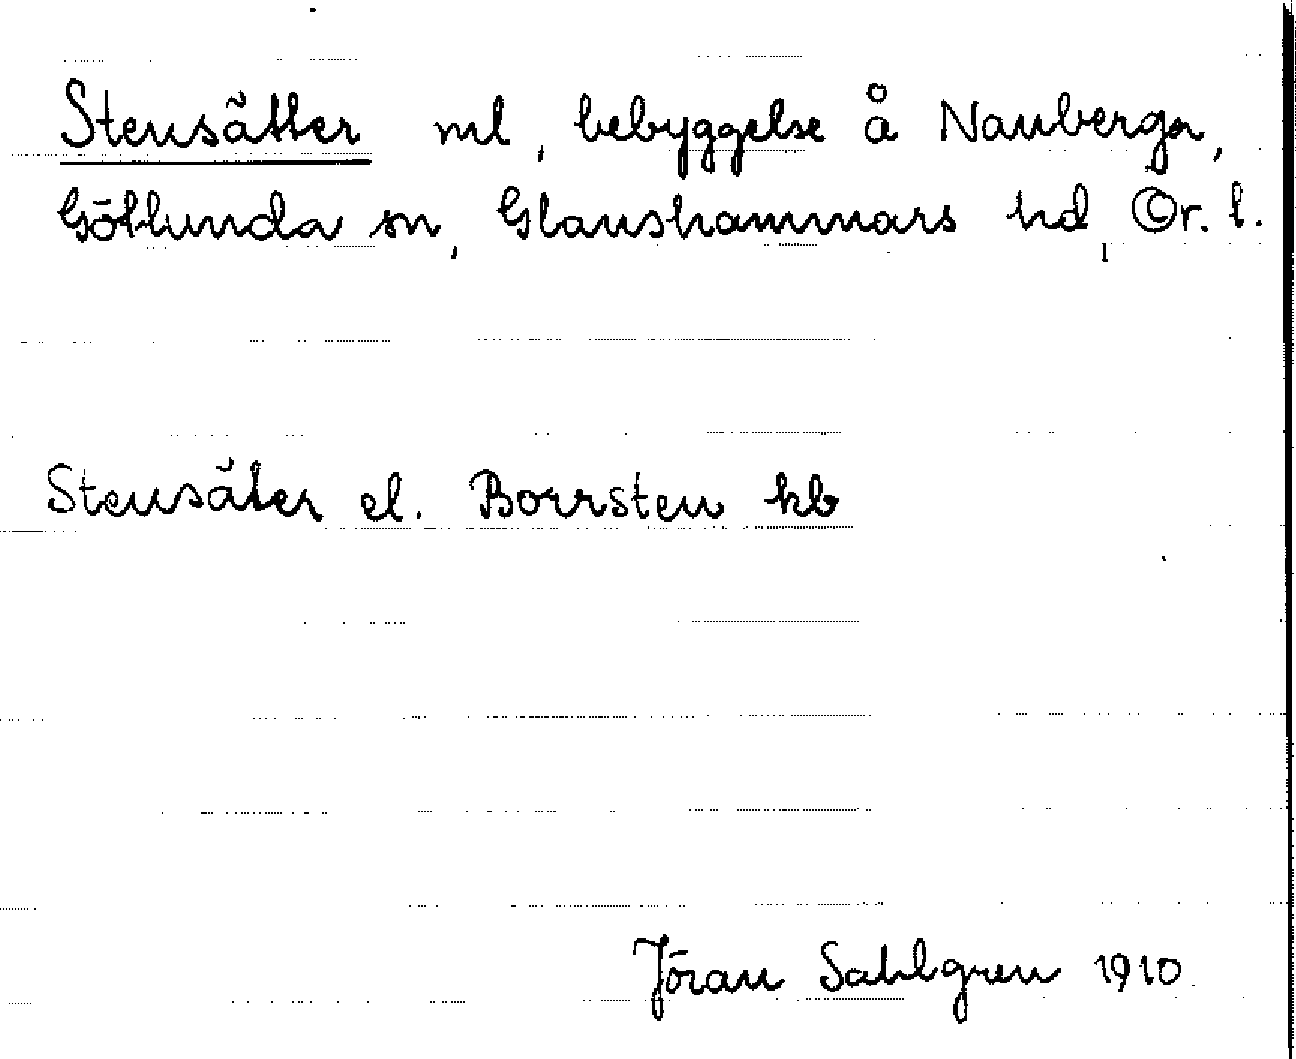 Stensätter ml, bebyggelse å Nanberga,
Götlunda sn, Glanshammars hd, Ör. l.
Stensäter el. Borrsten kb
Jöran Sahlgren 1910